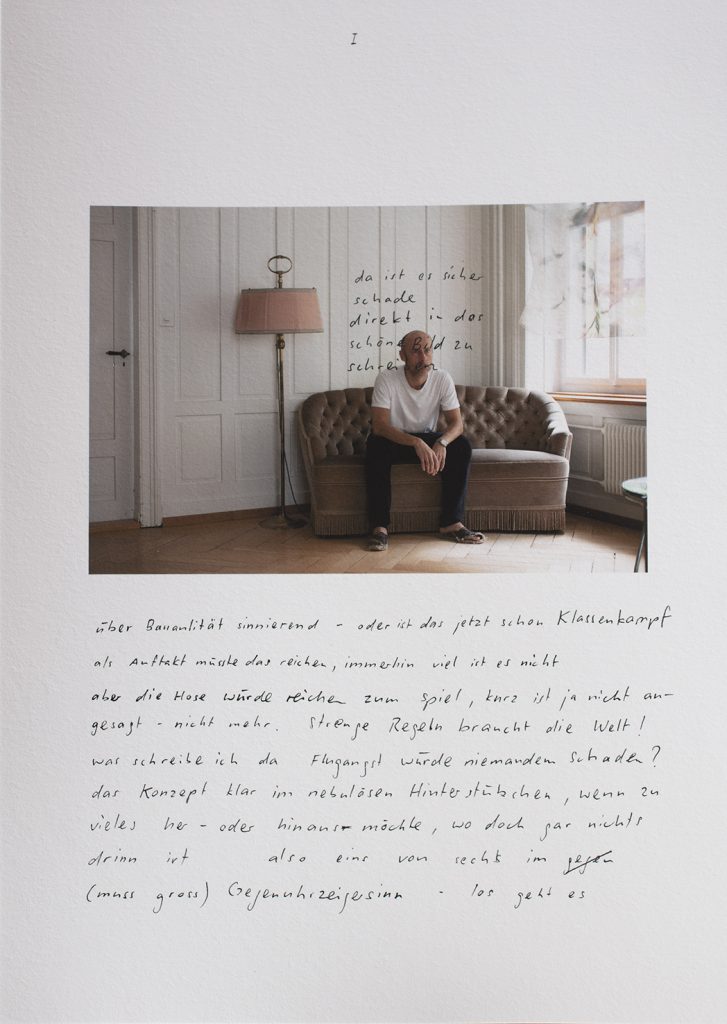 I
da ist es sicher
schade
direkt in das
schöne Bild zu
schreiben
über Bananlität sinnierend - oder ist das jetzt schon Klassenkampf
als Auftakt müsste das reichen, immerhin viel ist es nicht
aber die Hose würde reichen zum Spiel, kurz ist ja nicht an-
gesagt - nicht mehr. Strenge Regeln braucht die Welt!
was schreibe ich da Flugangst würde niemandem Schaden?
das Konzept klar im nebulösen Hinterstübchen, wenn zu
vieles her- oder hinaus möchte, wo doch gar nichts
drinn ist also eins von sechs im gegen
(muss gross) Gegenuhrzeigersinn - los geht es